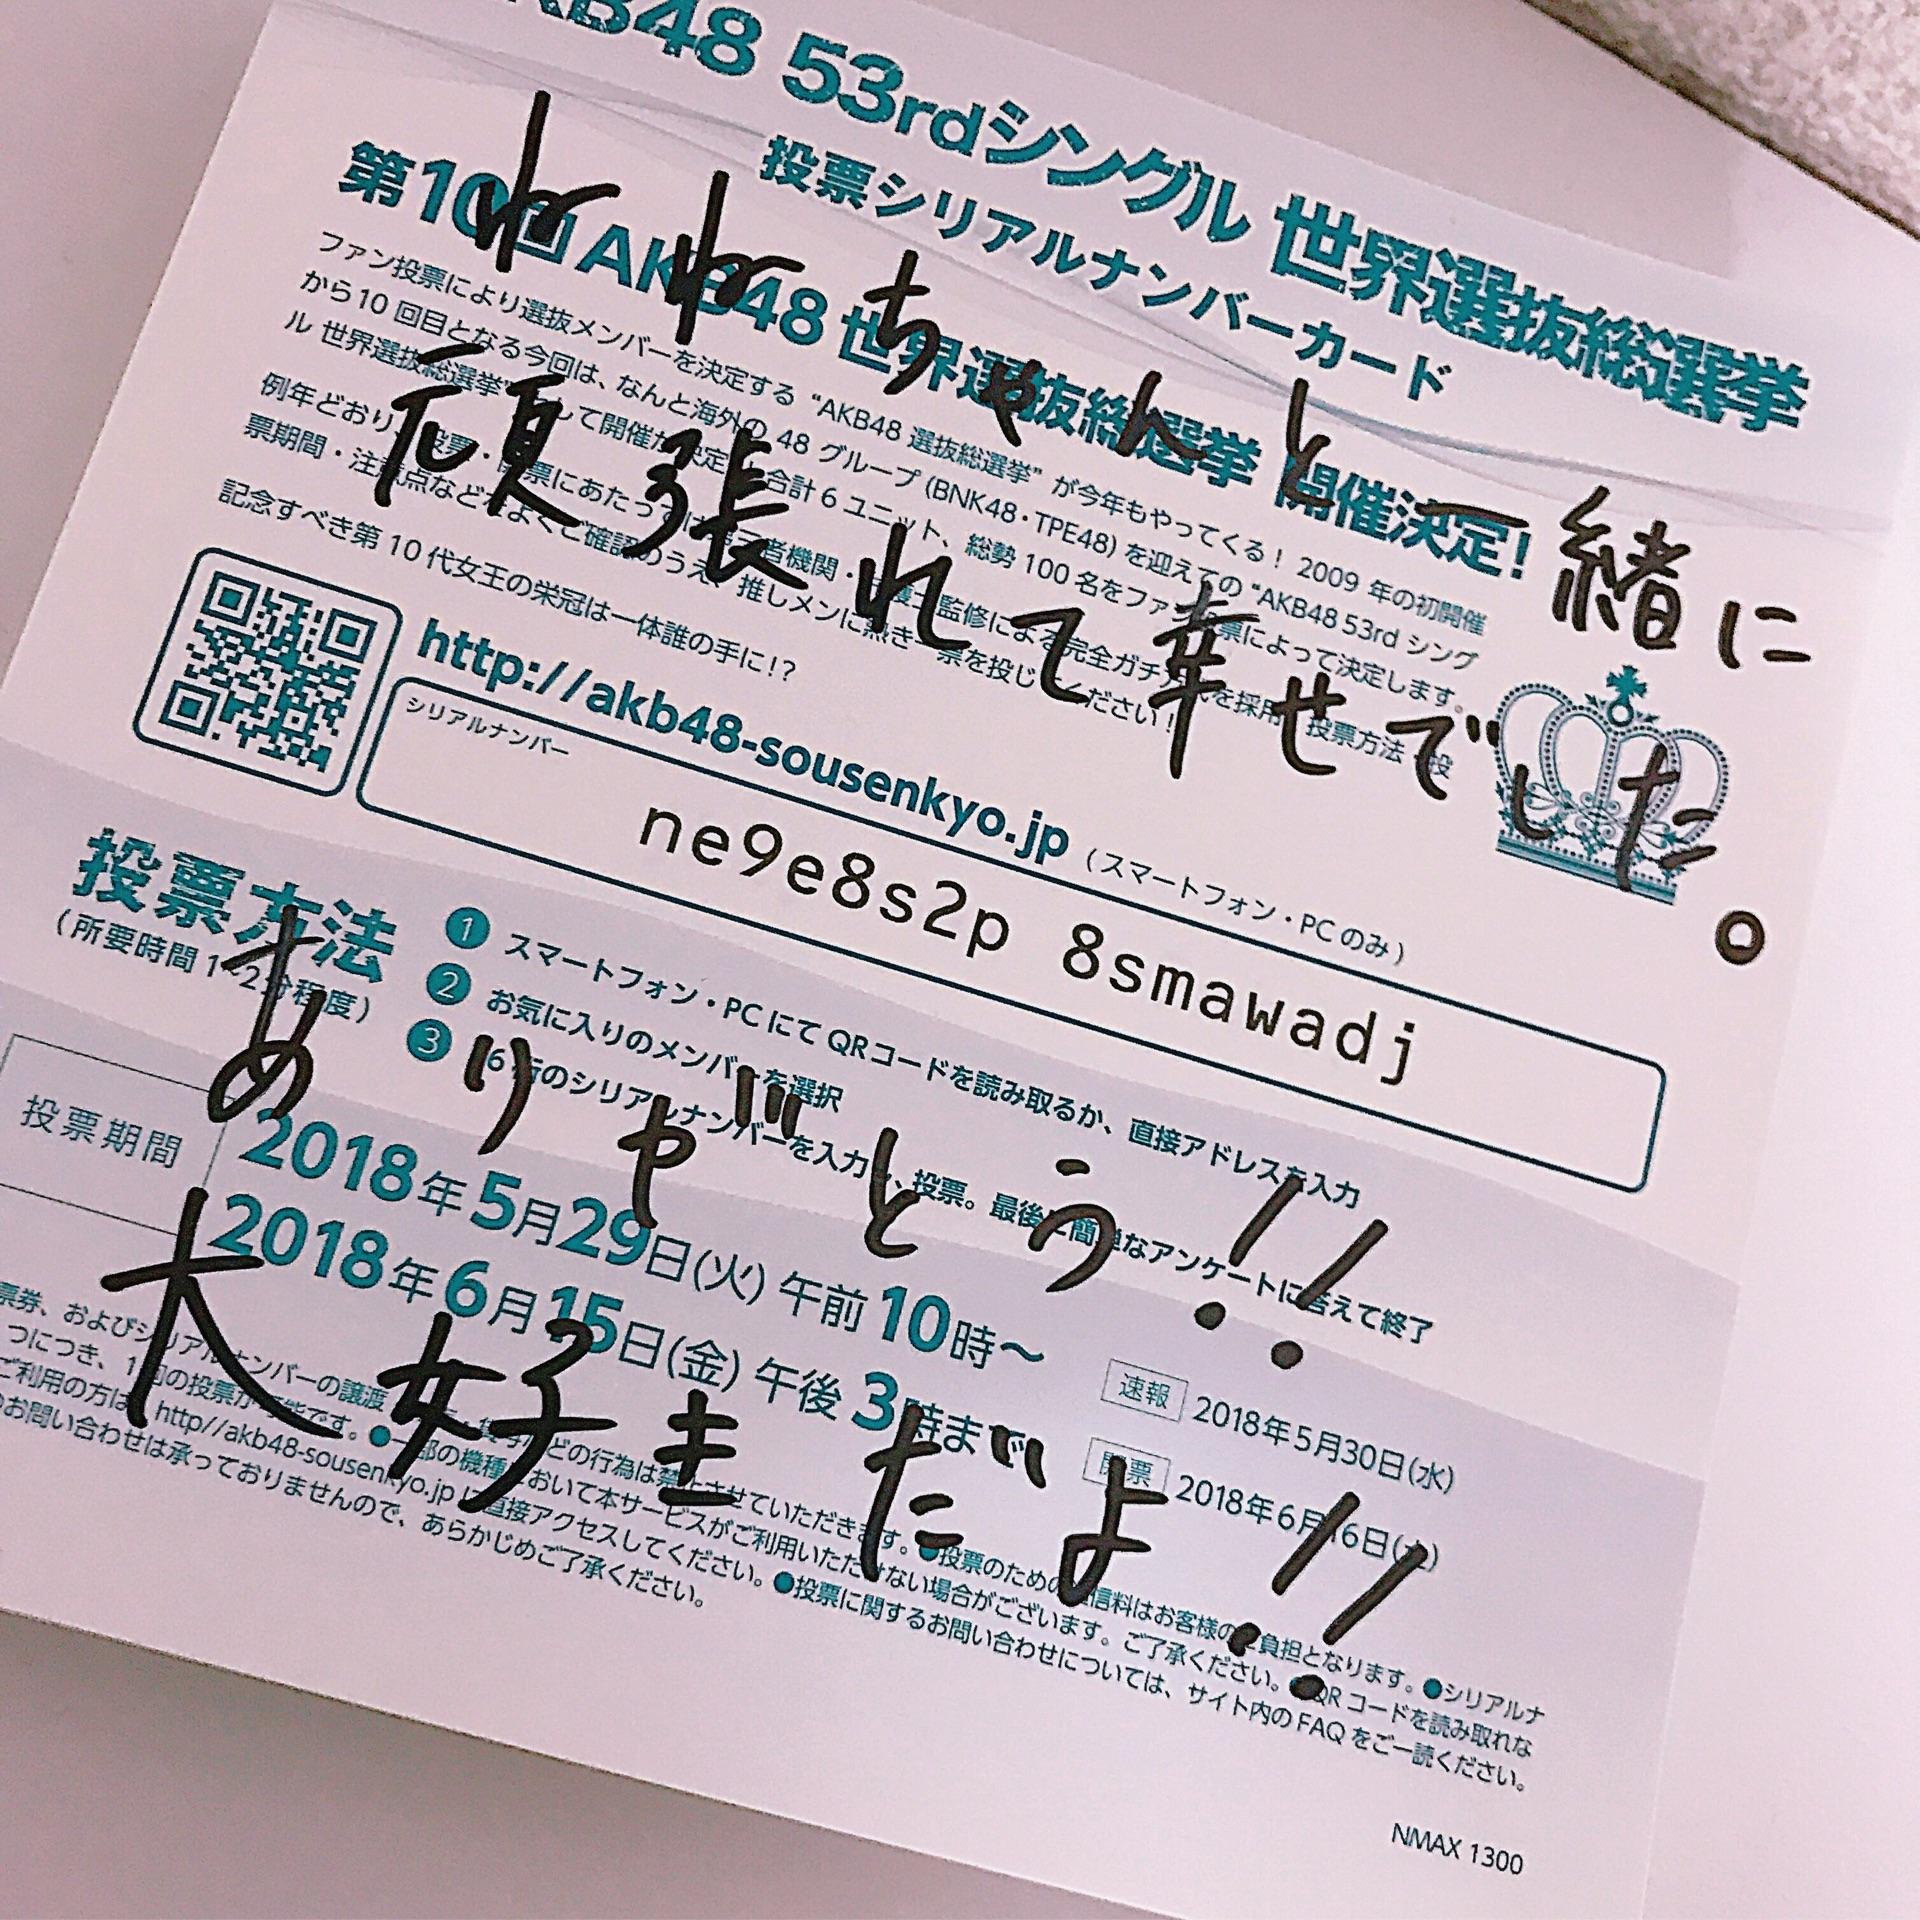 KB48 53rdシングル 世界選抜総選挙
投票シリアルナンバーカード
第10回 AKB48 世界選抜総選挙 開催決定!
ファン投票により選抜メンバーを決定する “AKB48 選抜総選挙” が今年もやってくる! 2009 年の初開催
から10 回目となる今回は、なんと海外の 48 グループ (BNK48・TPE48) を迎えての “AKB48 53rd シング
ル 世界選抜総選挙” して開催 決定 合計 6 ユニット、総勢 100 名をファ 票によって決定します。
例年どおり、投票・ 票にあたっては 三者機関・ 護士監修による完全ガチ を採用 投票方法 投
票期間・注意点などをよくご確認のうえ、推しメンに熱き一票を投じ ください!
記念すべき第 10 代女王の栄冠は一体誰の手に!?
ねねちゃんと一緒に
頑張れて幸せでした。
http://akb48-sousenkyo.jp (スマートフォン・PC のみ)
シリアルナンバー
ne9e8s2p 8smawadj
投票方法
(所要時間 1~2分程度)
1 スマートフォン・PC にて QRコードを読み取るか、直接アドレスを入力
2 お気に入りのメンバーを選択
3 6 桁のシリアルナンバーを入力し、投票。最後に簡単なアンケートに答えて終了
ありがとう!!
投票期間
2018年5月29日(火) 午前 10時〜
2018年6月15日(金) 午後 3時まで
速報 2018年5月30日(水)
開票 2018年6月16日(土)
大好きだよ!!
票券、およびシリアルナンバーの譲渡 どの行為は禁止させていただきます。●投票のための通信料はお客様のご負担となります。●シリアルナ
つにつき、1回の投票が可能です。●一部の機種において本サービスがご利用いただけない場合がございます。ご了承ください。●QRコードを読み取れな
ご利用の方は、http//akb48-sousenkyo.jp に直接アクセスしてください。●投票に関するお問い合わせについては、サイト内の FAQ をご一読ください。
のお問い合わせは承っておりませんので、あらかじめご了承ください。
NMAX 1300